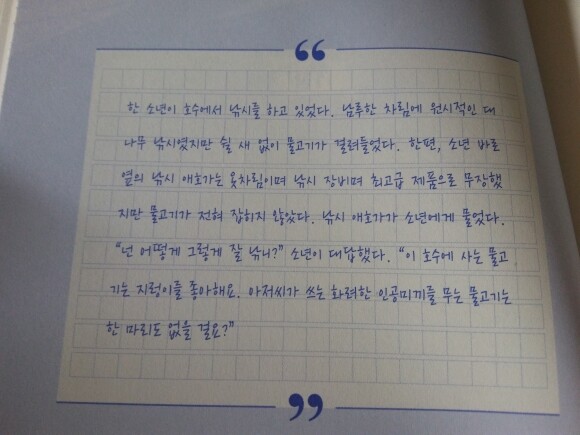 “
한 소년이 호수에서 낚시를 하고 있었다. 남루한 차림에 원시적인 대
나무 낚시였지만 쉴 새 없이 물고기가 걸려들었다. 한편, 소년 바로
옆의 낚시 애호가는 옷차림이며 낚시 장비며 최고급 제품으로 무장했
지만 물고기가 전혀 잡히지 않았다. 낚시 애호가가 소년에게 물었다.
“넌 어떻게 그렇게 잘 낚니?” 소년이 대답했다. “이 호수에 사는 물고
기는 지렁이를 좋아해요. 아저씨가 쓰는 화려한 인공미끼를 무는 물고기는
한 마리도 없을 걸요?”
”